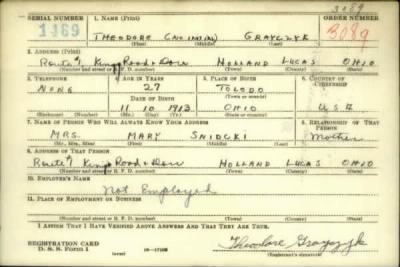 3089
SERIAL NUMBER 1. NAME (Print) ORDER NUMBER
1169 THEODORE (NO INITIAL) GRAYCZYK 3089
(First) (Middle) (Last)
2. ADDRESS (Print)
Route #1 King Road + Dorr HOLLAND LUCAS OHIO
(Number and street or R. F. D. number) (Town) (County) (State)
3. TELEPHONE 4. AGE IN YEARS 5. PLACE OF BIRTH 6. COUNTRY OF CITIZENSHIP
NONE 27 TOLEDO
DATE OF BIRTH (Town or county)
11 10 1913 OHIO U.S.A
(Exchange) (Number) (Mo.) (Day) (Yr.) (State or country)
7. NAME OF PERSON WHO WILL ALWAYS KNOW YOUR ADDRESS 8. RELATIONSHIP OF THAT PERSON
MRS. MARY Mother
(Mr., Mrs., Miss) (First) (Middle) (Last)
9. ADDRESS OF THAT PERSON
Route #1 King Road + Dorr HOLLAND LUCAS OHIO
(Number and street or R. F. D. number) (Town) (County) (State)
10. EMPLOYER'S NAME
Not Employed
11. PLACE OF EMPLOYMENT OR BUSINESS
(Number and street or R. F. D. number) (Town) (County) (State)
I AFFIRM THAT I HAVE VERIFIED ABOVE ANSWERS AND THAT THEY ARE TRUE.
REGISTRATION CARD
D. S. S. Form 1 Theodore Grayczyk
(Registrant's signature)